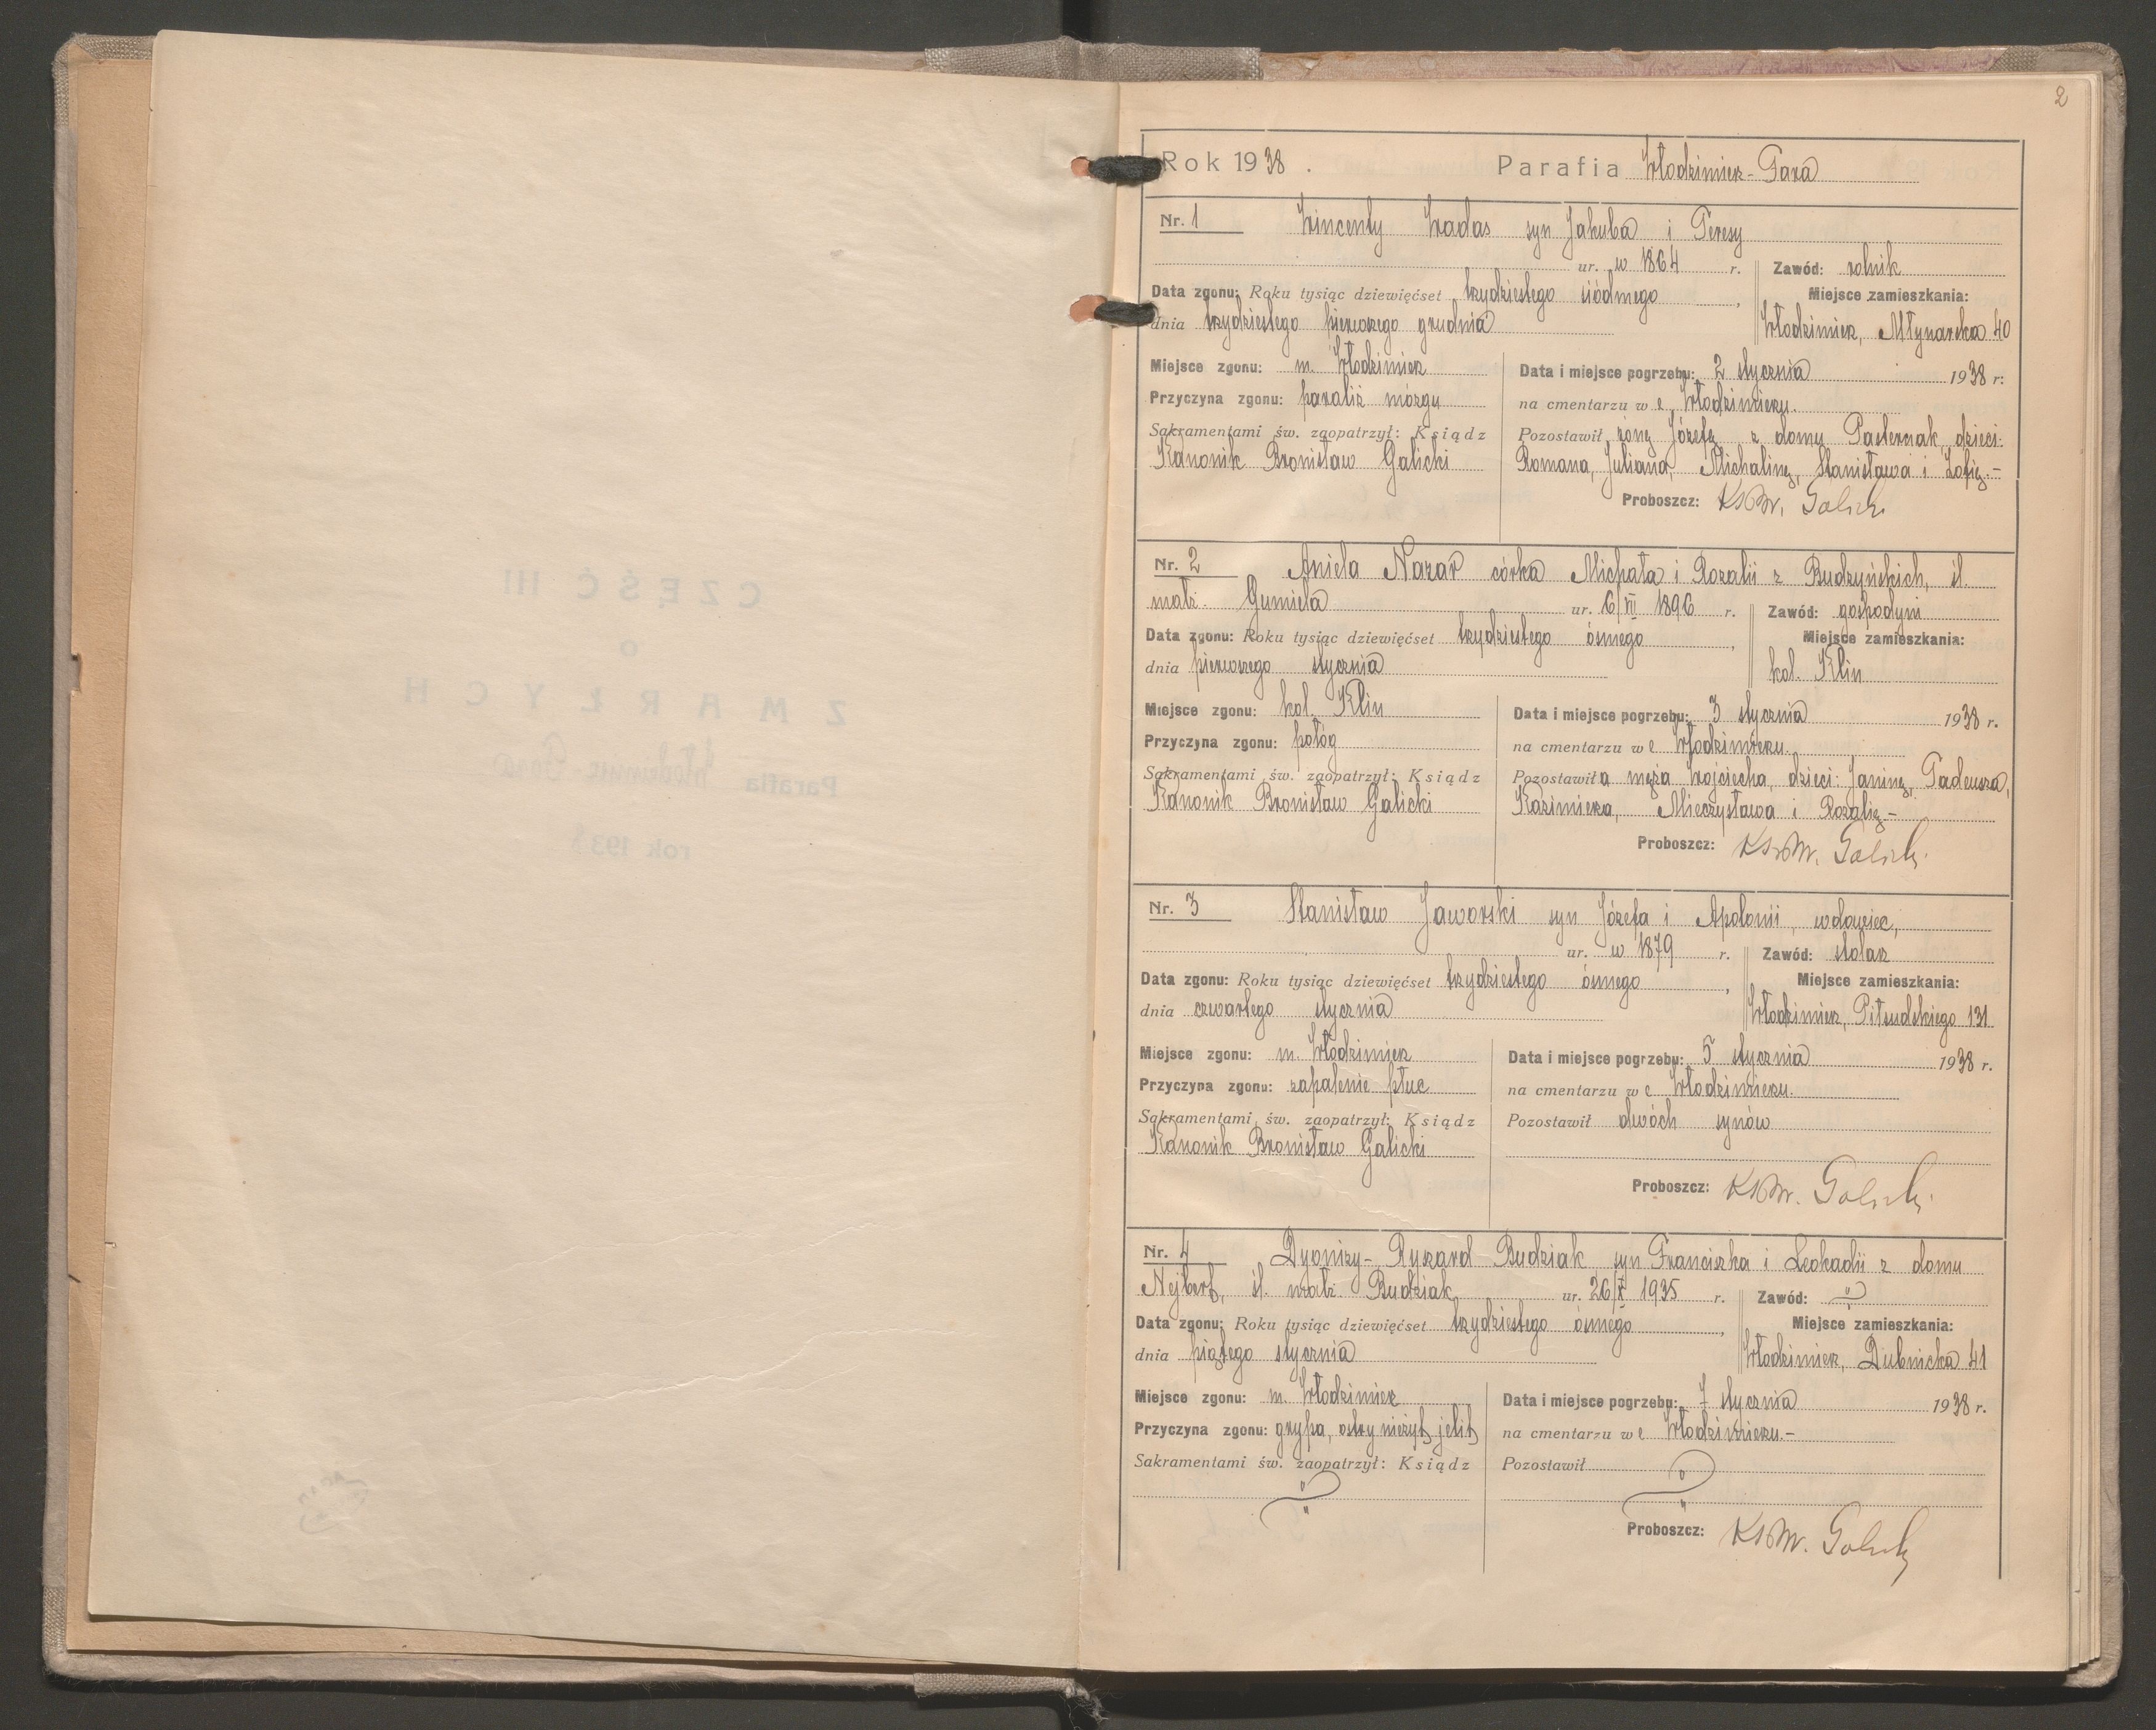 2
Rok 1938. Parafia Włodzimierz-Fara
Nr. 1 Wincenty Wadas syn Jakuba i Teresy
ur. w 1864 r. Zawód: rolnik
Data zgonu: Roku tysiąc dziewięćset trzydziestego siódmego, Miejsce zamieszkania:
dnia trzydziestego pierwszego grudnia Włodzimierz, Młynarska 40
Miejsce zgonu: m. Włodzimierz
Przyczyna zgonu: paraliż mózgu
Sakramentami św. zaopatrzył: Ksiądz
Kanonik Bronisław Galicki
Data i miejsce pogrzebu: 2 stycznia 1938 r.
na cmentarzu we Włodzimierzu.
Pozostawił żonę Józefę z domu Pasternak, dzieci:
Romana, Juliana, Michalinę, Stanisława i Zofię.-
Proboszcz: Ks Br. Galicki
Nr. 2 Aniela Nazar córka Michała i Rozalii z Budzyńskich, śl.
małż. Gumiela ur. 6/VII 1896 r. Zawód: gospodyni
Data zgonu: Roku tysiąc dziewięćset trzydziestego ósmego, Miejsce zamieszkania:
dnia pierwszego stycznia kol. Klin
Miejsce zgonu: kol. Klin
Przyczyna zgonu: połóg
Sakramentami św. zaopatrzył: Ksiądz
Kanonik Bronisław Galicki
Data i miejsce pogrzebu: 3 stycznia 1938 r.
na cmentarzu we Włodzimierzu.
Pozostawiła męża Wojciecha, dzieci: Janinę, Tadeusza,
Kazimierza, Mieczysława i Rozalię-
Proboszcz: Ks Br. Galicki
Nr. 3 Stanisław Jaworski syn Józefa i Apolonii, wdowiec,
ur. w 1879 r. Zawód: stolarz
Data zgonu: Roku tysiąc dziewięćset trzydziestego ósmego, Miejsce zamieszkania:
dnia czwartego stycznia Włodzimierz, Piłsudskiego 131
Miejsce zgonu: m. Włodzimierz
Przyczyna zgonu: zapalenie płuc
Sakramentami św. zaopatrzył: Ksiądz
Kanonik Bronisław Galicki
Data i miejsce pogrzebu: 5 stycznia 1938 r.
na cmentarzu we Włodzimierzu.
Pozostawił dwóch synów
Proboszcz: Ks Br. Galicki
Nr. 4 Dyonizy-Ryszard Budziak syn Franciszka i Leokadii z domu
Nejberf, śl. małż. Budziak ur. 26/X 1935 r. Zawód:
Data zgonu: Roku tysiąc dziewięćset trzydziestego ósmego, Miejsce zamieszkania:
dnia piątego stycznia Włodzimierz, Dubnicka 41
Miejsce zgonu: m. Włodzimierz
Przyczyna zgonu: grypa, ostry nieżyt jelit
Sakramentami św. zaopatrzył: Ksiądz
Data i miejsce pogrzebu: 7 stycznia 1938 r.
na cmentarzu we Włodzimierzu.-
Pozostawił
Proboszcz: Ks Br. Galicki